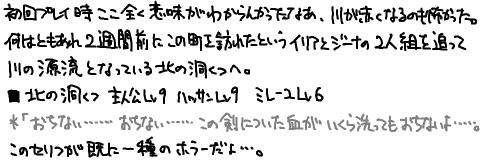 初回プレイ時ここ全く意味がわからんかったなあ、川が赤くなるのも怖かった。
何はともあれ2週間前にこの町を訪れたというイリアとジーナの2人組を追って
川の源流となっている北の洞くつへ。
■北の洞くつ 主人公Lv9 ハッサンLv9 ミレーユLv6
*「おちない…… おちない…… この剣についた血が いくら洗ってもおちないよ……。
このセリフが既に一種のホラーだよ…。